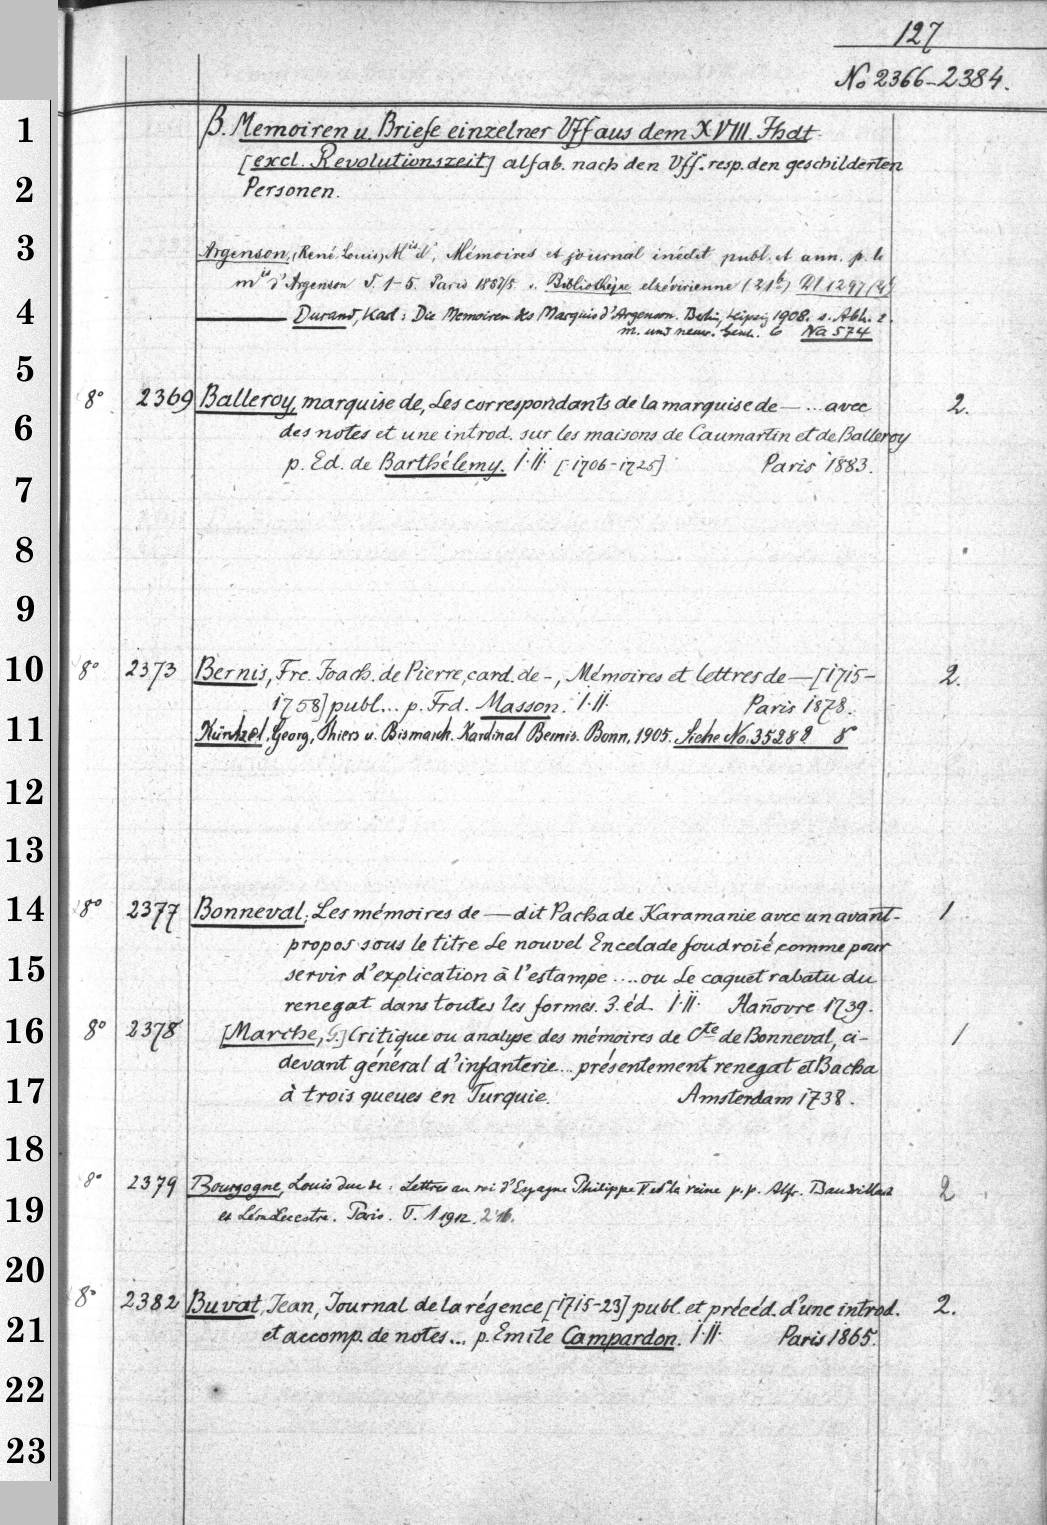 127
No 2366-2384.
1
β. Memoiren u. Briefe einzelner Vff aus dem XVIII. Jhdt.
[excl. Revolutionszeit] alfab. nach den Vff. resp. den geschilderten
2
Personen.
3
Argenson, (René Louis) Mis d', Mémoires et journal inédit publ. et ann. p. le
mis d'Argenson T. 1-5. Paris 1857/8. s. Bibliothèque elzévirienne
4
Durand, Karl: Die Memoiren des Marquis d'Argenson. Berlin, Leipzig 1908. s. Abh. z.
m. und neuer. Gesch. 6 Na 574
5
8° 2369 Balleroy, marquise de, Les correspondants de la marquise de — ... avec 2.
6
des notes et une introd. sur les maisons de Caumartin et de Balleroy
p. Ed. de Barthélemy. I.II. [1706-1725] Paris 1883.
7
8
9
10
8° 2373 Bernis, Frc. Joach. de Pierre, card. de -, Mémoires et lettres de — [1715- 2.
1758] publ... p. Frd. Masson. I.II. Paris 1878.
11
Küntzel, Georg, Thiers u. Bismarck. Kardinal Bernis. Bonn, 1905. Siehe No. 35288 8
12
13
14
8° 2377 Bonneval, Les mémoires de — dit Pacha de Karamanie avec un avant- 1
propos sous le titre Le nouvel Encelade foudroié, comme pour
15
servir d'explication à l'estampe .... ou Le caquet rabatu du
renegat dans toutes les formes. 3. éd. I.II. Hañovre 1739.
16
8° 2378 [Marche, C.] Critique ou analyse des mémoires de Cte de Bonneval, ci- 1
devant général d'infanterie... présentement renegat et Bacha
17
à trois queues en Turquie. Amsterdam 1738.
18
8° 2379 Bourgogne, Louis duc de: Lettres au roi d'Espagne Philippe V et à la reine p. p. Alfr. Baudrillart 2
19
et Léon Lecestre. Paris. T. 1 1912. 2 '16.
20
8° 2382 Buvat, Jean, Journal de la régence [1715-23] publ. et précéd. d'une introd. 2.
21
et accomp. de notes... p. Emile Campardon. I.II. Paris 1865.
22
23